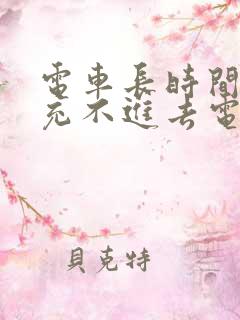 電車長時間
充不進去電
貝克特